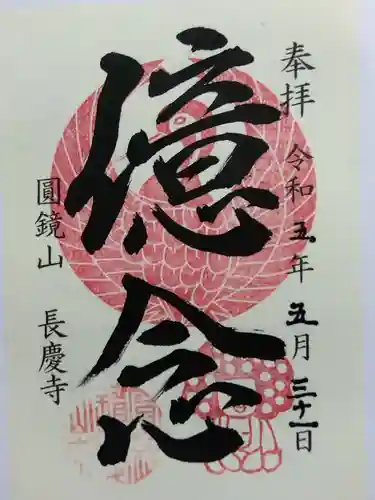 奉拝
令和五年五月三十一日
億念
圓鏡山
長慶寺